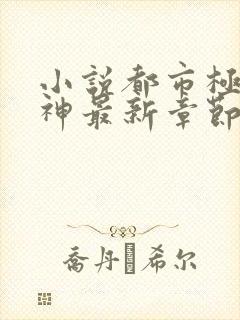 小説都市極
神最新章節
喬丹 希尔